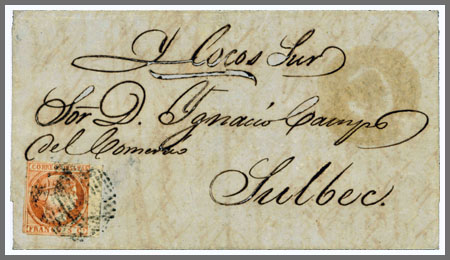 Y Cocos Sur
Sor D. Ygnacio Campo
del Comercio
Sulbec.
CORREOS
FRANCO